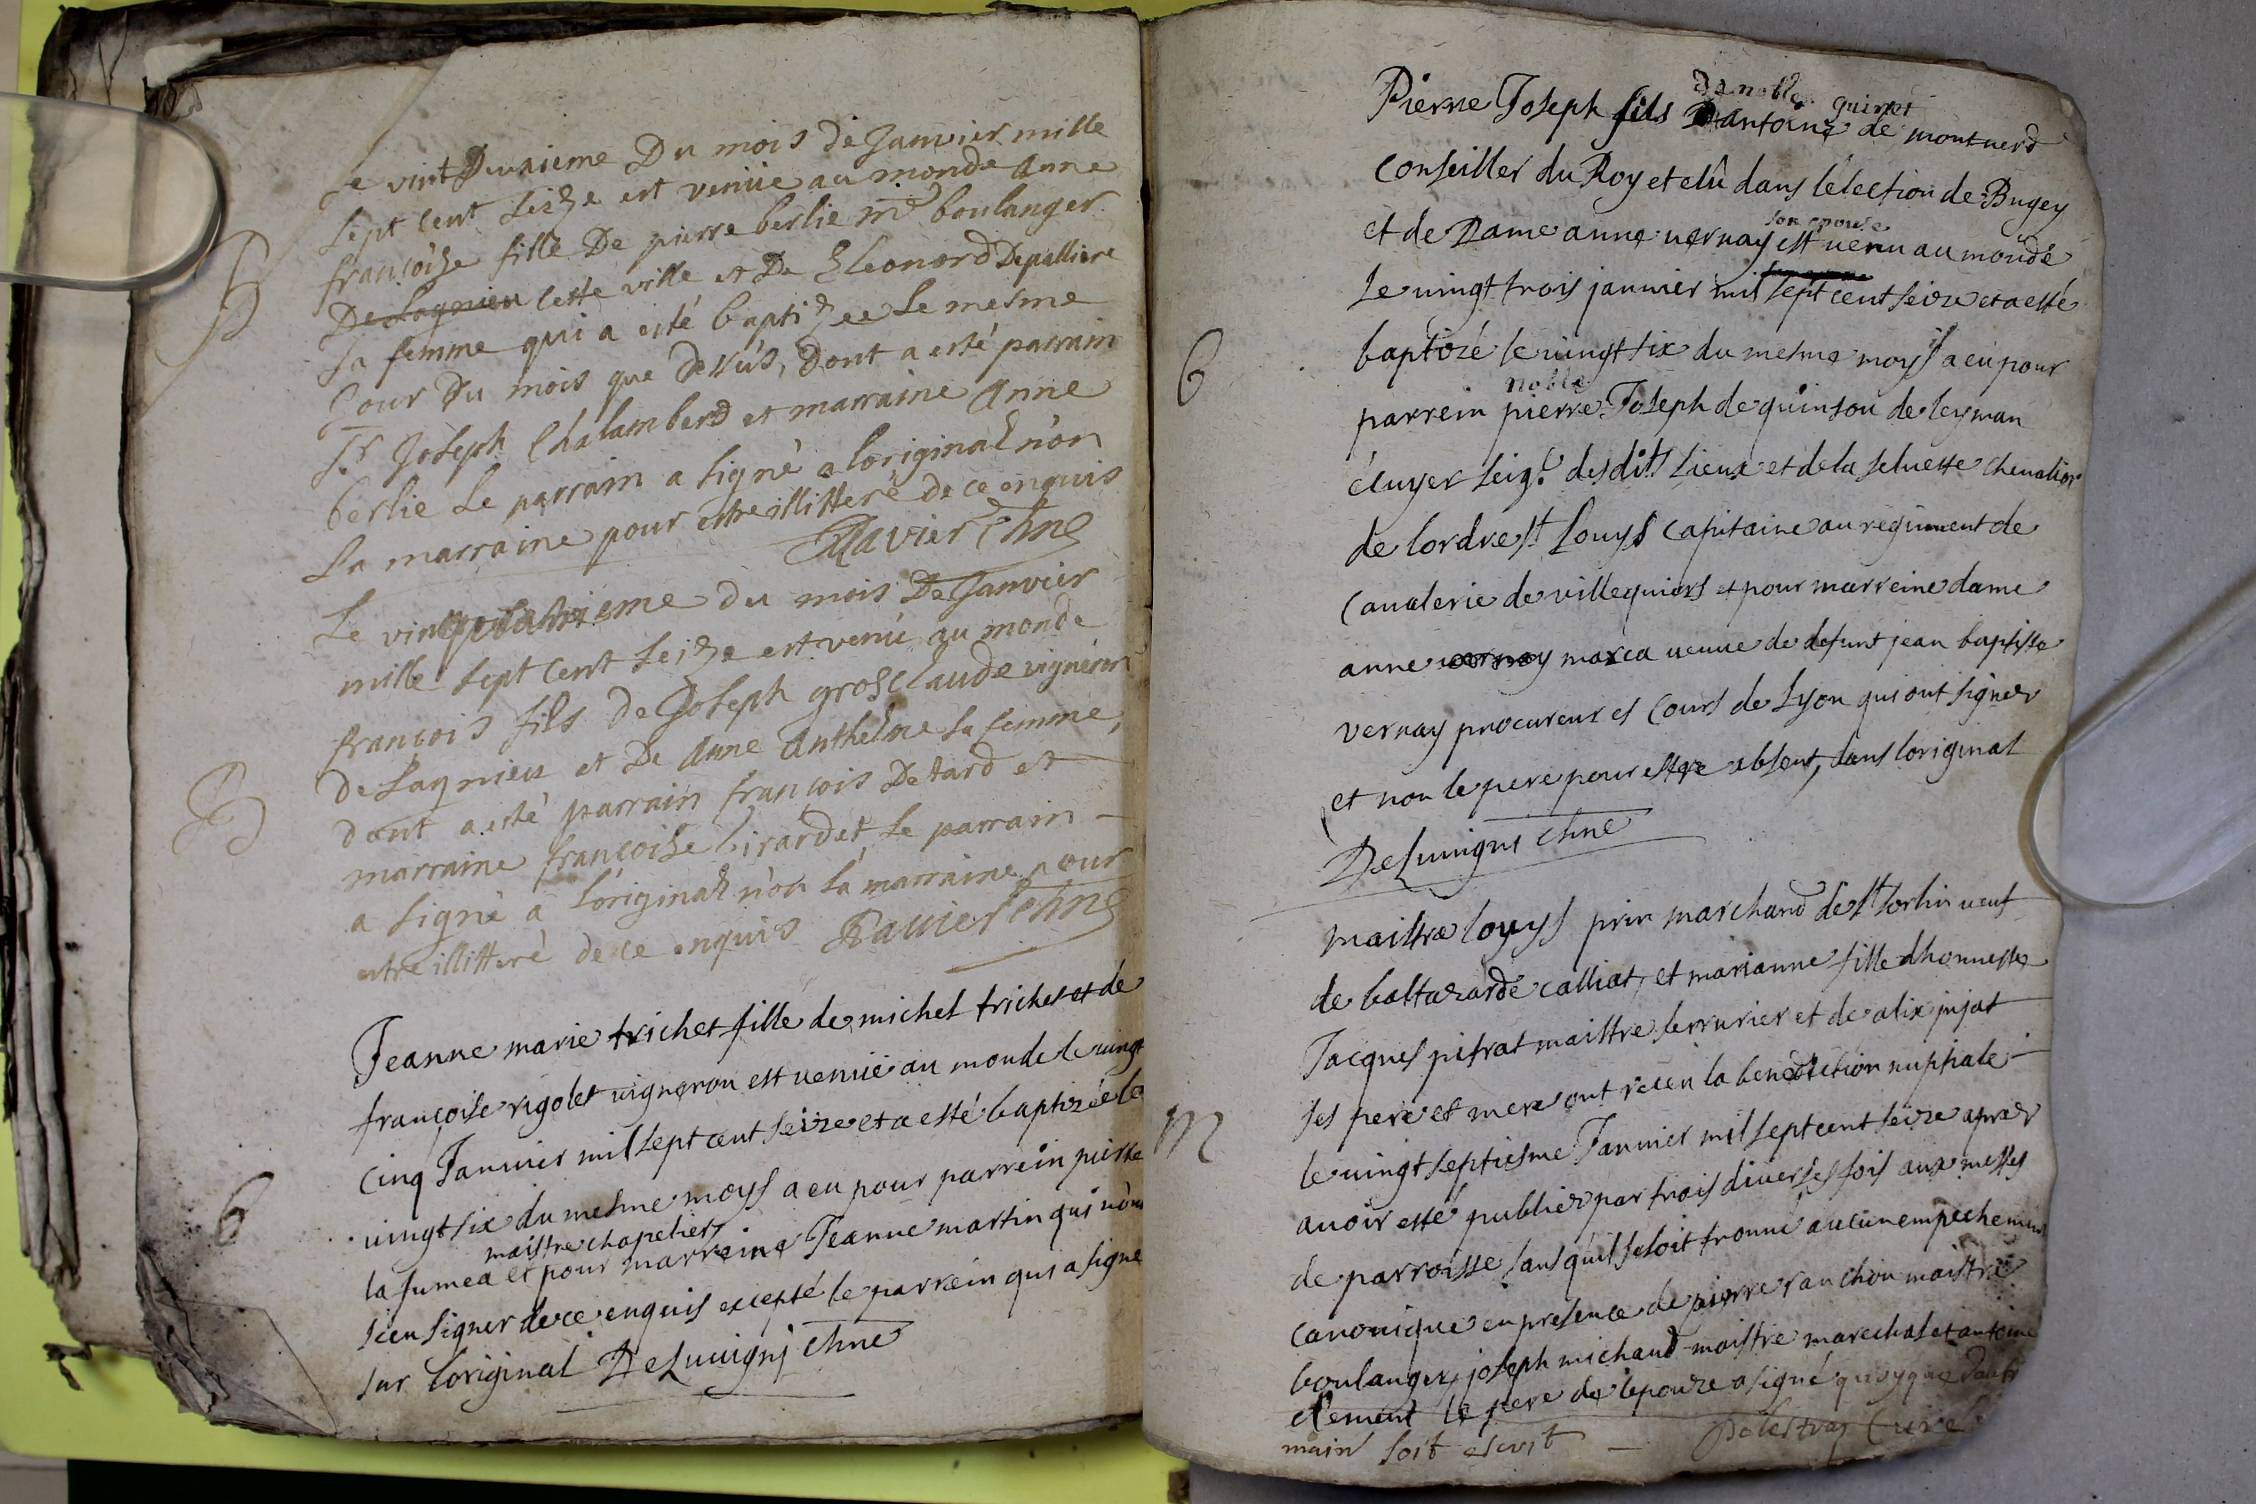 Le vint Deuxieme Du mois de Janvier mille
sept cent seize est venüe au monde Anne
françoise fille De pierre berlie md boulanger
De Lagnieu cette ville et De Eleonord Depalliere
sa femme qui a esté baptizee Le mesme
Jour Du mois que Dessus, Dont a esté parrain
Sr Joseph Chalamberd et marraine Anne
berlie Le parrain a signé a loriginal non
La marraine pour estre illitteré de ce enquis
Ravier Chne
B
Le vingt quatrieme du mois De Janvier
mille sept cent seize est venu au monde
françois fils de Joseph grosclaude vigneron
De Lagnieu et De Anne Anthelme sa femme,
dont a esté parrain françois Detard et
marraine françoise Girardet, Le parrain
a signé a l'original non la marraine pour
estre illitteré de ce enquis Ravier Chne
B
Jeanne marie trichet fille de michel trichet et de
françoise rigolet vigneron est venüe au monde le vingt
cinq Janvier mil sept cent seize et a esté baptizée le
vingt six du mesme moys a eu pour parrein pierre
maistre chapelier
la fumea et pour marreine Jeanne martin qui n'ont
sceu signer de ce enquis excepté le parrein qui a signé
sur loriginal DeLuvigni Chne
6
de noble guinet
Pierre Joseph fils D'antoine de montverd
Conseiller du Roy et elû dans lelection de Bugey
son epouse
et de Dame anne vernay est venu au monde
Le vingt trois janvier mil sept cent seize et a esté
baptizé le vingt six du mesme moys il a eu pour
noble
parrein pierre Joseph de quinson de leyman
écuyer seigr desdits Lieux et de la seluette chevalier
de lordre st Louys Capitaine au regiment de
Cavalerie de villequiers et pour marreine dame
anne vernay marca veuve de defunt jean baptiste
vernay procureur es Cours de Lyon qui ont signer
et non le pere pour estre absent, dans loriginal
DeLuvigni Chne
6
Maistre Louys prin marchand de st sorlin veuf
de baltazarde calliat, et marianne fille dhonneste
Jacques pitrat maistre serrurier et de alix jujat
ses pere et mere ont receu la benediction nuptiale
le vingt septiesme Janvier mil sept cent seize apres
avoir esté publiez par trois diverses fois aux messes
de parroisse sans quil se soit trouvé aucun empechement
canonique en presence de pierre ranchon maistre
boulanger, joseph michaud maistre marechal et antoine
clement le pere de lepouze a signé quoyque dautre
main soit escrit Delestraz Curé
M